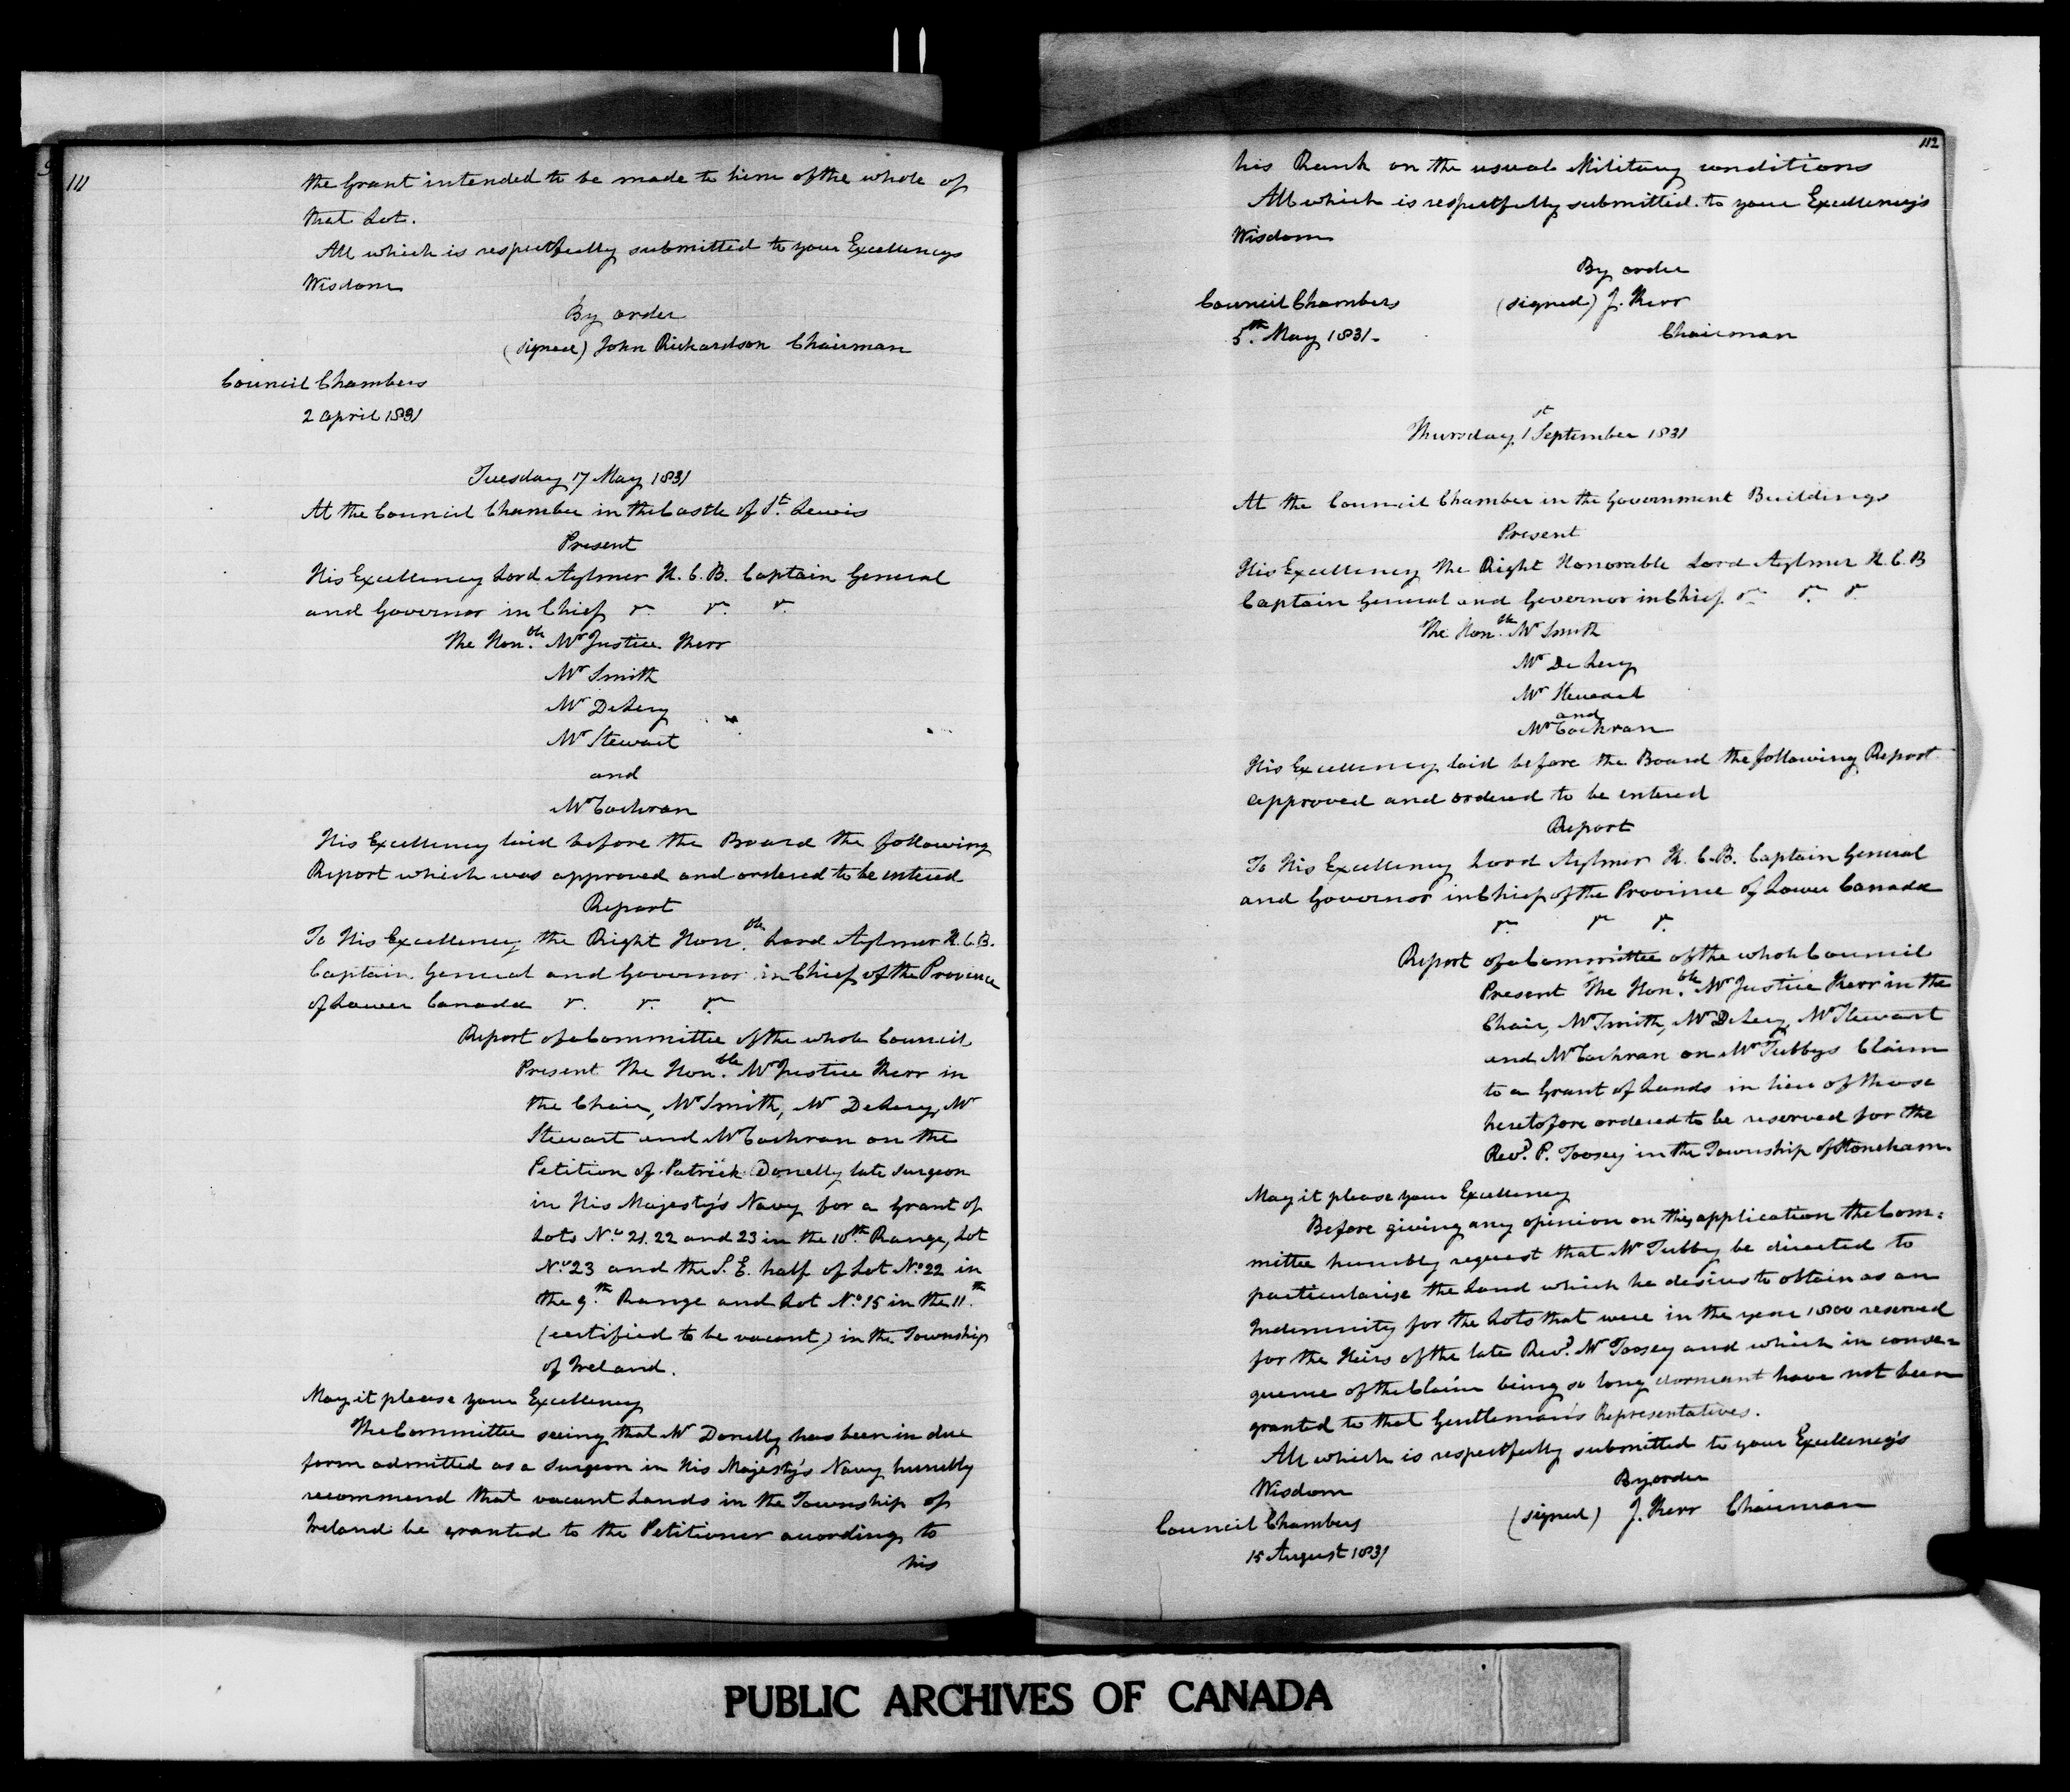 111
the Grant intended to be made to him of the whole of
that Lot.
All which is respectfully submitted to your Excellencys
Wisdom
By order
(signed) John Richardson Chairman
Council Chambers
2 April 1831
Tuesday 17 May 1831
At the Council Chamber in the Castle of St. Lewis
Present
His Excellency Lord Aylmer K. C. B. Captain General
and Governor in Chief &c. &c. &c.
The Honble. Mr Justice Kerr
Mr Smith
Mr DeLery
Mr Stewart
and
Mr Cochran
His Excellency laid before the Board the following
Report which was approved and ordered to be entered
Report
To His Excellency the Right Honble. Lord Aylmer K. C. B.
Captain General and Governor in Chief of the Province
of Lower Canada &c. &c. &c.
Report of a Committee of the whole Council
Present The Honble. Mr Justice Kerr in
the Chair, Mr Smith, Mr DeLery, Mr
Stewart and Mr Cochran on the
Petition of Patrick Donelly late Surgeon
in His Majesty's Navy for a Grant of
Lots No. 21. 22 and 23 in the 10th. Range, Lot
No. 23 and the S. E. half of Lot No. 22 in
the 9th. Range and Lot No. 15 in the 11.th
(certified to be vacant) in the Township
of Ireland.
May it please your Excellency
The Committee seeing that Mr Donelly has been in due
form admitted as a Surgeon in His Majesty's Navy humbly
recommend that vacant Lands in the Township of
Ireland be granted to the Petitioner according to
his
112
his Rank on the usual Military conditions
All which is respectfully submitted to your Excellency's
Wisdom
By order
Council Chambers (signed) J. Kerr
5th. May 1831. Chairman
Thursday 1st September 1831
At the Council Chamber in the Government Buildings
Present
His Excellency The Right Honorable Lord Aylmer K. C. B
Captain General and Governor in Chief &c. &c. &c.
The Honble. Mr Smith
Mr DeLery
Mr Stewart
and
Mr Cochran
His Excellency laid before the Board the following Report
approved and ordered to be entered
Report
To His Excellency Lord Aylmer K. C. B. Captain General
and Governor in Chief of the Province of Lower Canada
&c. &c. &c.
Report of a Committee of the whole Council
Present The Honble. Mr Justice Kerr in the
Chair, Mr Smith, Mr DeLery, Mr Stewart
and Mr Cochran on Mr Tubbys Claim
to a Grant of Lands in lieu of those
heretofore ordered to be reserved for the
Revd. P. Toosey in the Township of Stoneham.
May it please your Excellency
Before giving any opinion on this application the Com:
mittee humbly request that Mr Tubby be directed to
particularise the Land which he desires to obtain as an
Indemnity for the Lots that were in the year 1800 reserved
for the Heirs of the late Revd. Mr Toosey and which in conse=
quence of the Claim being so long dormant have not been
granted to that Gentleman's Representatives.
All which is respectfully submitted to your Excellency's
Wisdom
By order
Council Chambers (signed) J. Kerr Chairman
15 August 1831
PUBLIC ARCHIVES OF CANADA